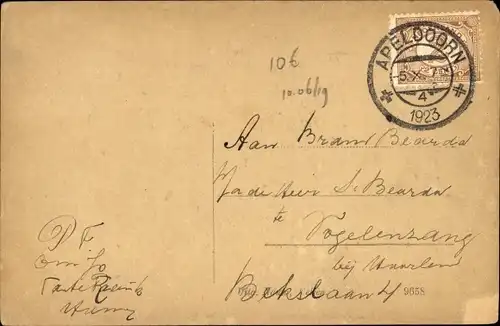 APELDOORN
5.X.
4
1923
10€
10.06/19
Aan Bram Bearda
p/a de Heer S. Bearda
te
Vogelenzang
bij Haarlem
Bekslaan 4
9658
P F
Om Jo
Tante